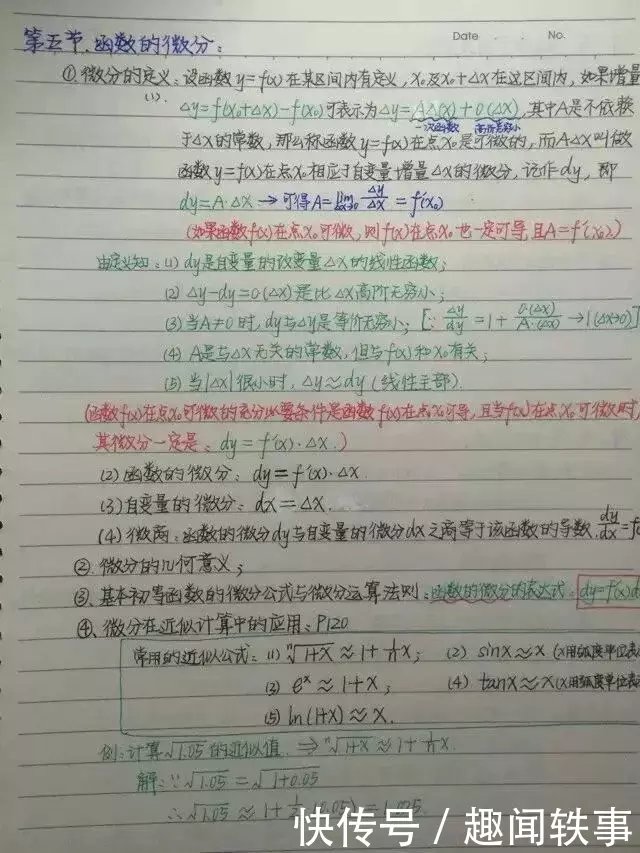 Date . . No.
第五节、函数的微分:
①、微分的定义: 设函数y=f(x)在某区间内有定义, x₀及x₀+Δx在这区间内, 如果增量
(1).
Δy=f(x₀+Δx)-f(x₀)可表示为Δy=AΔ(x)+o(Δx), 其中A是不依赖
一次函数 高阶无穷小
于Δx的常数, 那么称函数y=f(x)在点x₀是可微的, 而AΔx叫做
函数y=f(x)在点x₀相应于自变量增量Δx的微分, 记作dy, 即
dy=A·Δx → 可得A=lim Δx→0 Δy/Δx = f'(x₀)
(如果函数f(x)在点x₀可微, 则f(x)在点x₀也一定可导, 且A=f'(x₀).)
由定义知: (1) dy是自变量的改变量Δx的线性函数;
(2) Δy-dy=o(Δx)是比Δx高阶无穷小;
(3) 当A≠0时, dy与Δy是等价无穷小; [∵ Δy/dy = 1+ o(Δx)/A·(Δx) → 1 (Δx→0)]
(4) A是与Δx无关的常数, 但与f(x)和x₀有关;
(5) 当|Δx|很小时, Δy≈dy (线性主部).
(函数f(x)在点x₀可微的充分必要条件是函数f(x)在点x₀可导, 且当f(x)在点x₀可微时,
其微分一定是: dy=f'(x)·Δx.)
(2) 函数的微分: dy=f'(x)·Δx.
(3) 自变量的微分: dx=Δx.
(4) 微商: 函数的微分dy与自变量的微分dx之商等于该函数的导数. dy/dx=f
②. 微分的几何意义;
③、基本初等函数的微分公式与微分运算法则: 函数的微分的表达式: dy=f'(x)d
④、微分在近似计算中的应用: P120
常用的近似公式: (1) ⁿ√1+x ≈ 1+ 1/n x; (2) sinx≈x (x用弧度单位表
(3) eˣ≈1+x; (4) tanx≈x (x用弧度单位表
(5) ln(1+x)≈x.
例: 计算√1.05的近似值. ⇒ ⁿ√1+x ≈ 1+ 1/n x.
解: ∵ √1.05 = √1+0.05
∴ √1.05 ≈ 1+ 1/2 (0.05) = 1.025.
快传号 / 趣闻轶事